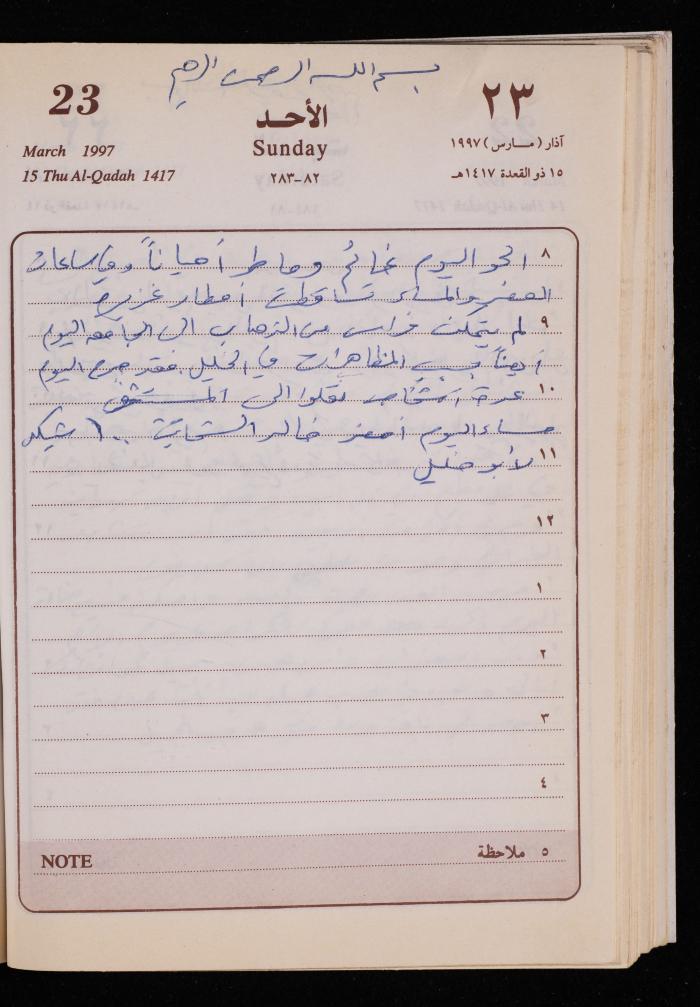 بسم الله الرحمن الرحيم
23
الأحد
٢٣
March 1997
Sunday
آذار (مارس) ١٩٩٧
15 Thu Al-Qadah 1417
٨٢-٢٨٣
١٥ ذو القعدة ١٤١٧هـ
٨ الجو اليوم غائم وماطر أحياناً وفي ساعات
العصر والمساء تساقطت أمطار غزيرة
٩ لم يتمكن فراس من الذهاب الى الجامعة اليوم
أيضاً بسبب المظاهرات في الخليل فقد جرح اليوم
١٠ عدة أشخاص نقلوا الى المستشفى
مساء اليوم أحضر خالد الشحاتيت ١٠٠ شيكل
١١ لأبو خليل
١٢
١
٢
٣
٤
NOTE
٥ ملاحظة